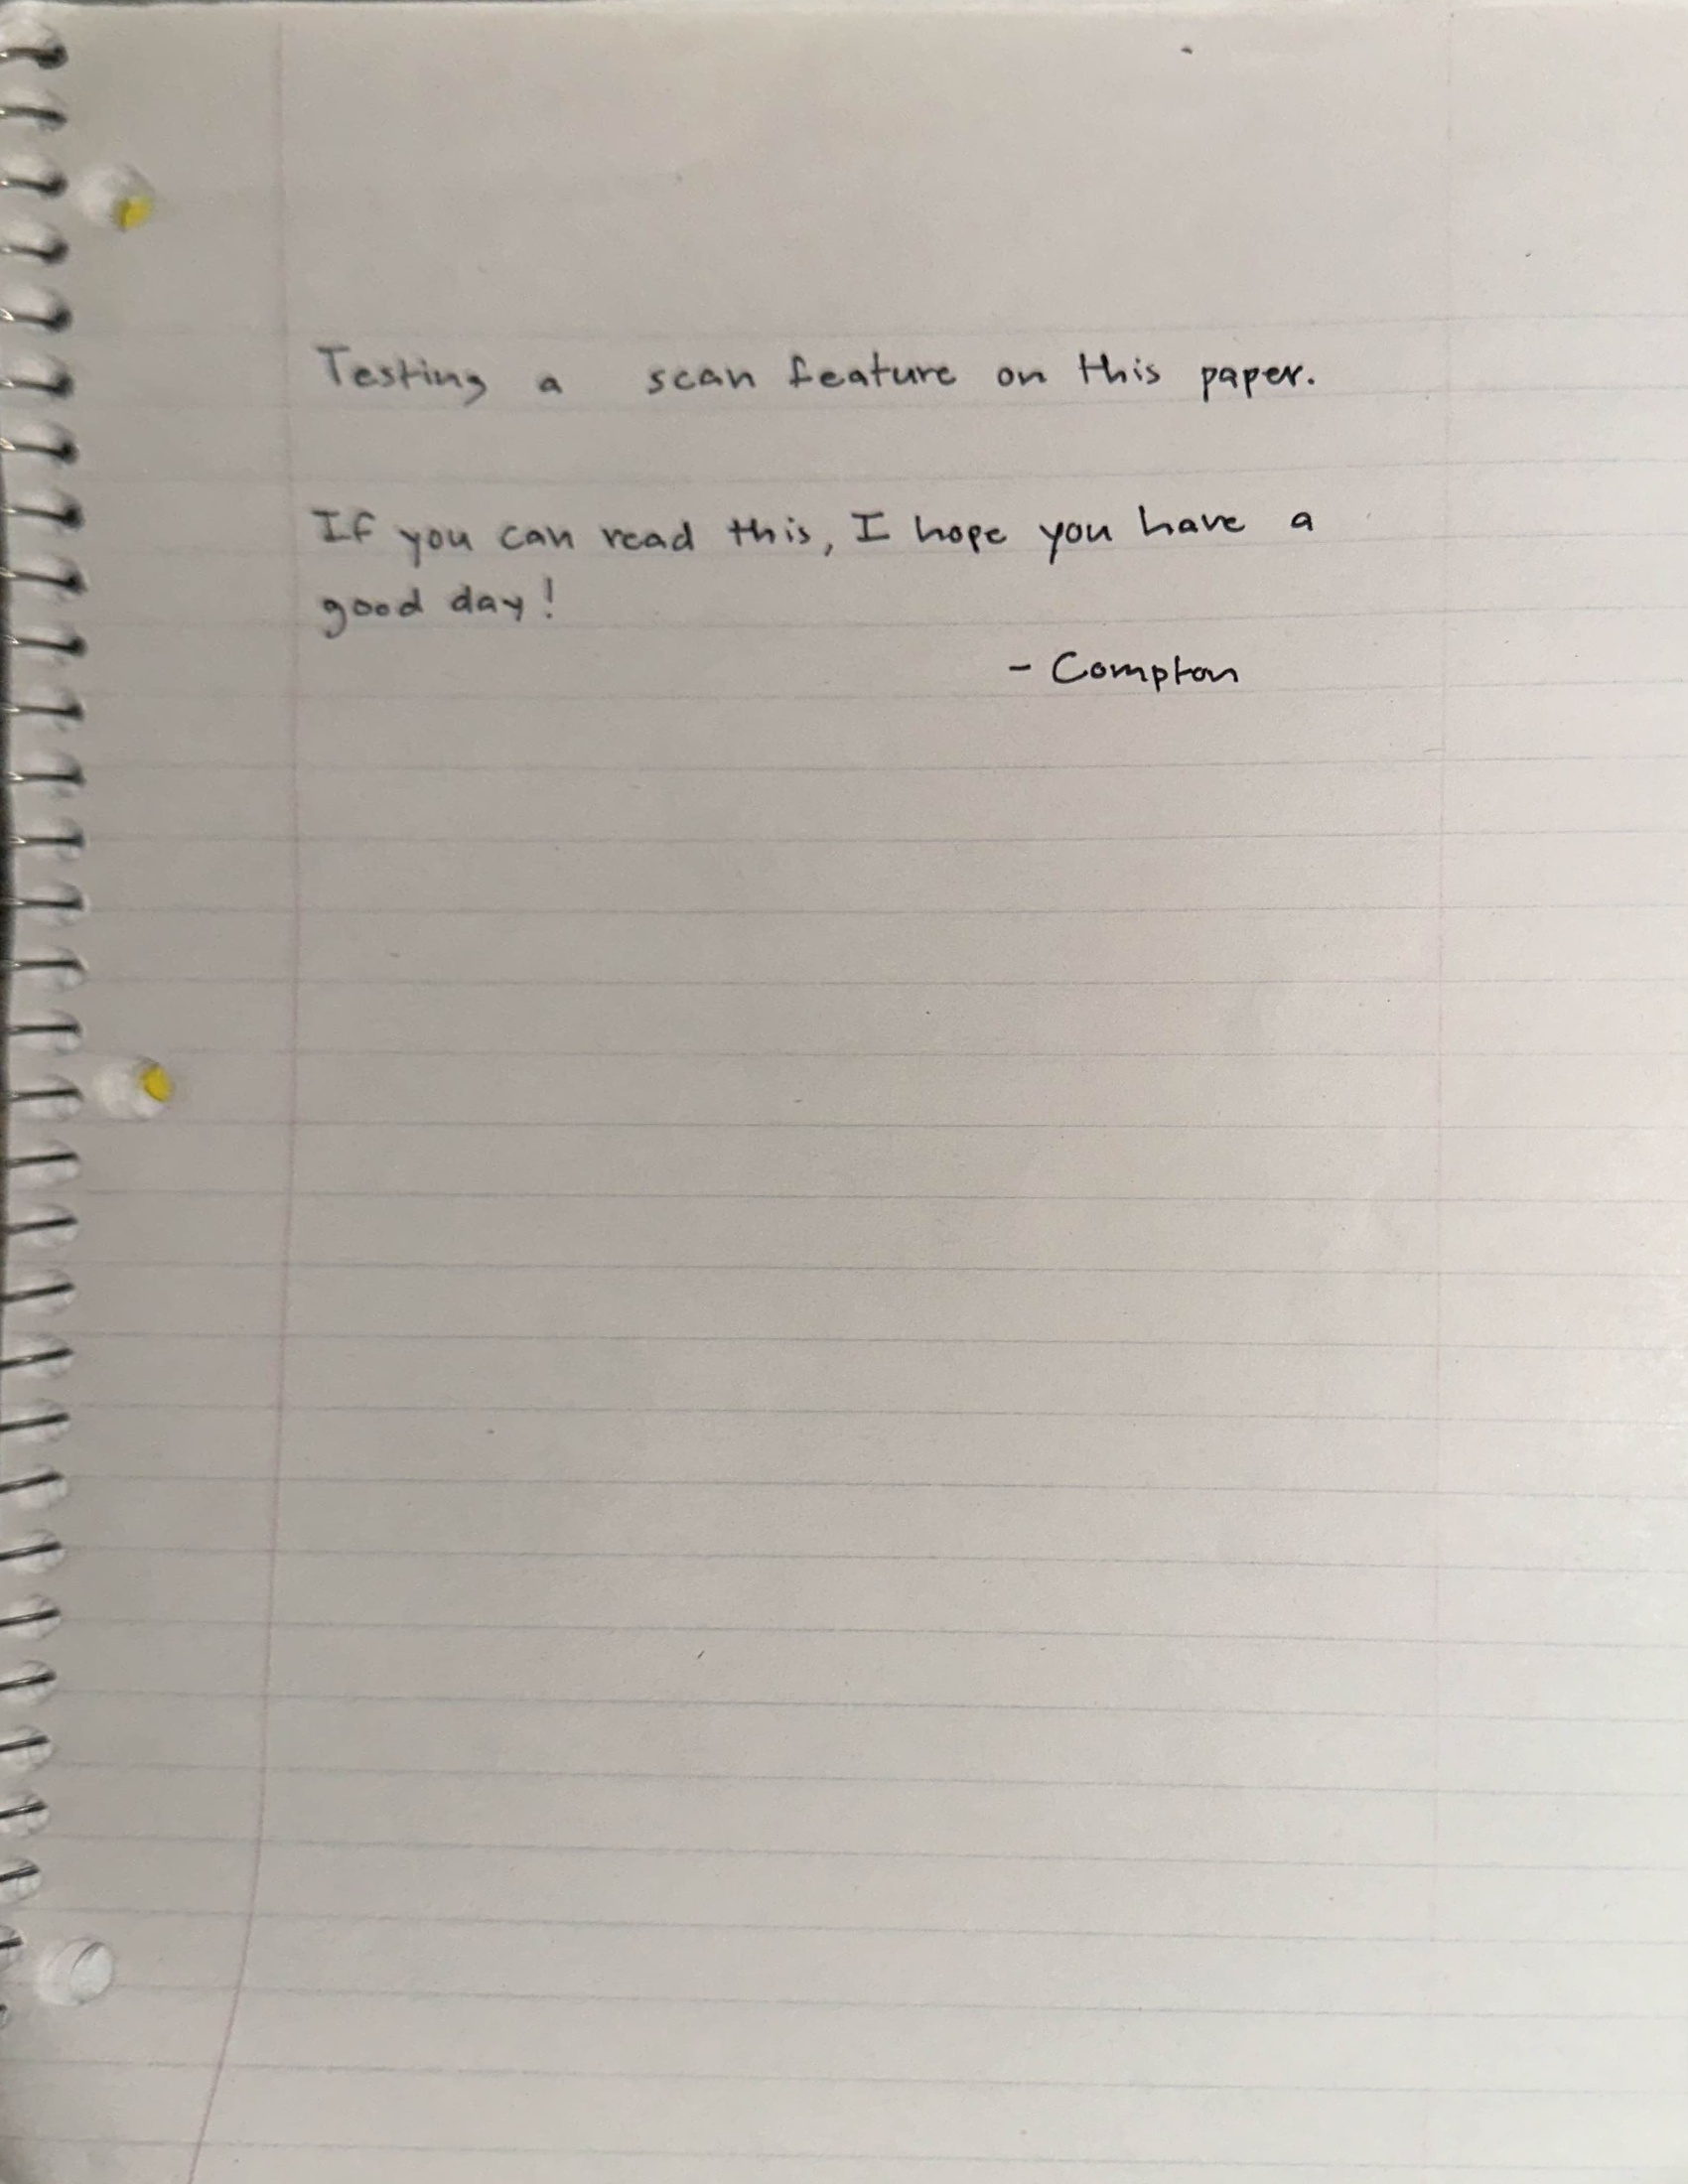 Testing a scan feature on this paper.
If you can read this, I hope you have a
good day!
- Compton